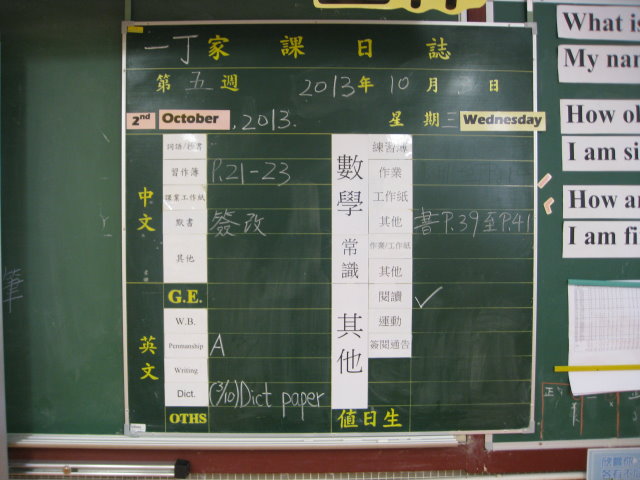 一丁家課日誌
第五週 2013年10月 日
2nd October, 2013. 星期三 Wednesday
中文
習作簿 P.21-23
課業工作紙
默書 簽改
其他
G.E.
英文
W.B.
Penmanship A
Writing
Dict. (3/10)Dict paper
OTHS
數學
練習簿
作業
工作紙
其他 書P.39至P.41
常識
作業/工作紙
其他
其他
閱讀 ✓
運動
簽閱通告
值日生
What is
My nam
How ol
I am si
How ar
I am fi
筆